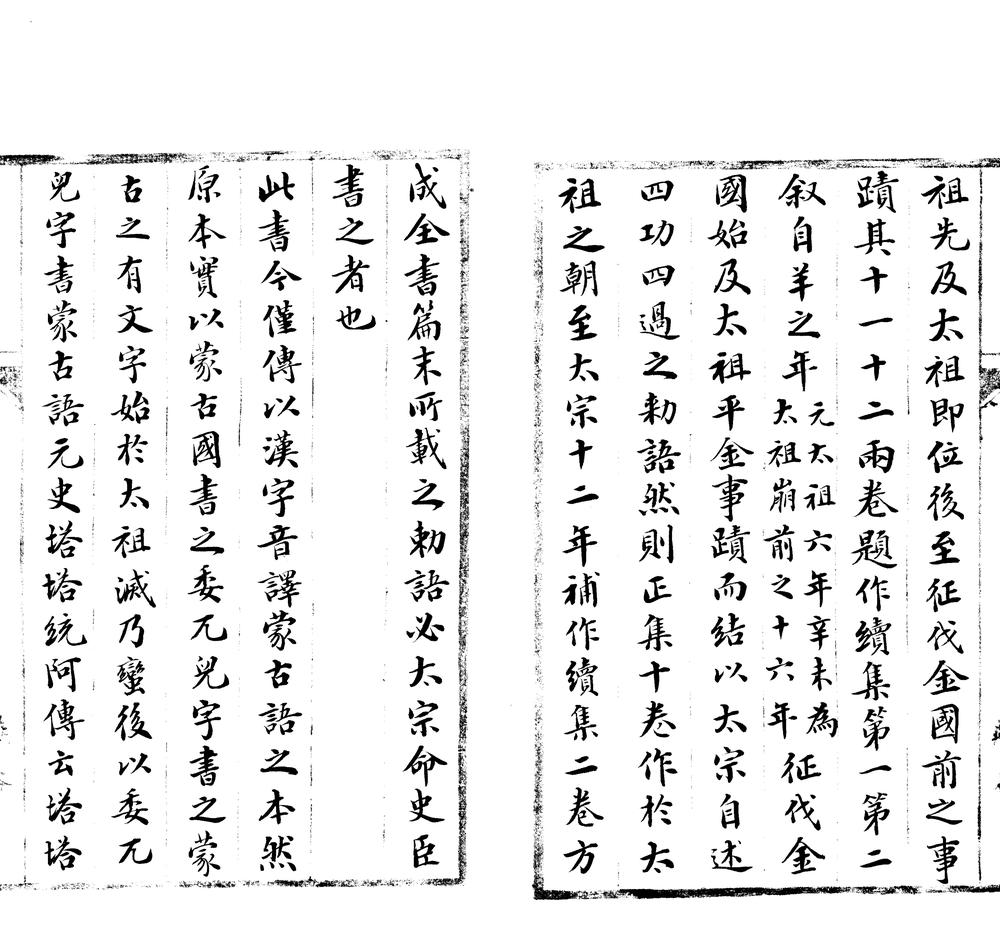 祖先及太祖即位後至征伐金國前之事
蹟其十一十二兩卷題作續集第一第二
叙自羊之年元太祖六年辛未為太祖崩前之十六年征伐金
國始及太祖平金事蹟而結以太宗自述
四功四過之勅語然則正集十卷作於太
祖之朝至太宗十二年補作續集二卷方
成全書篇末所載之勅語必太宗命史臣
書之者也
此書今僅傳以漢字音譯蒙古語之本然
原本實以蒙古國書之委兀兒字書之蒙
古之有文字始於太祖滅乃蠻後以委兀
兒字書蒙古語元史塔塔統阿傳云塔塔